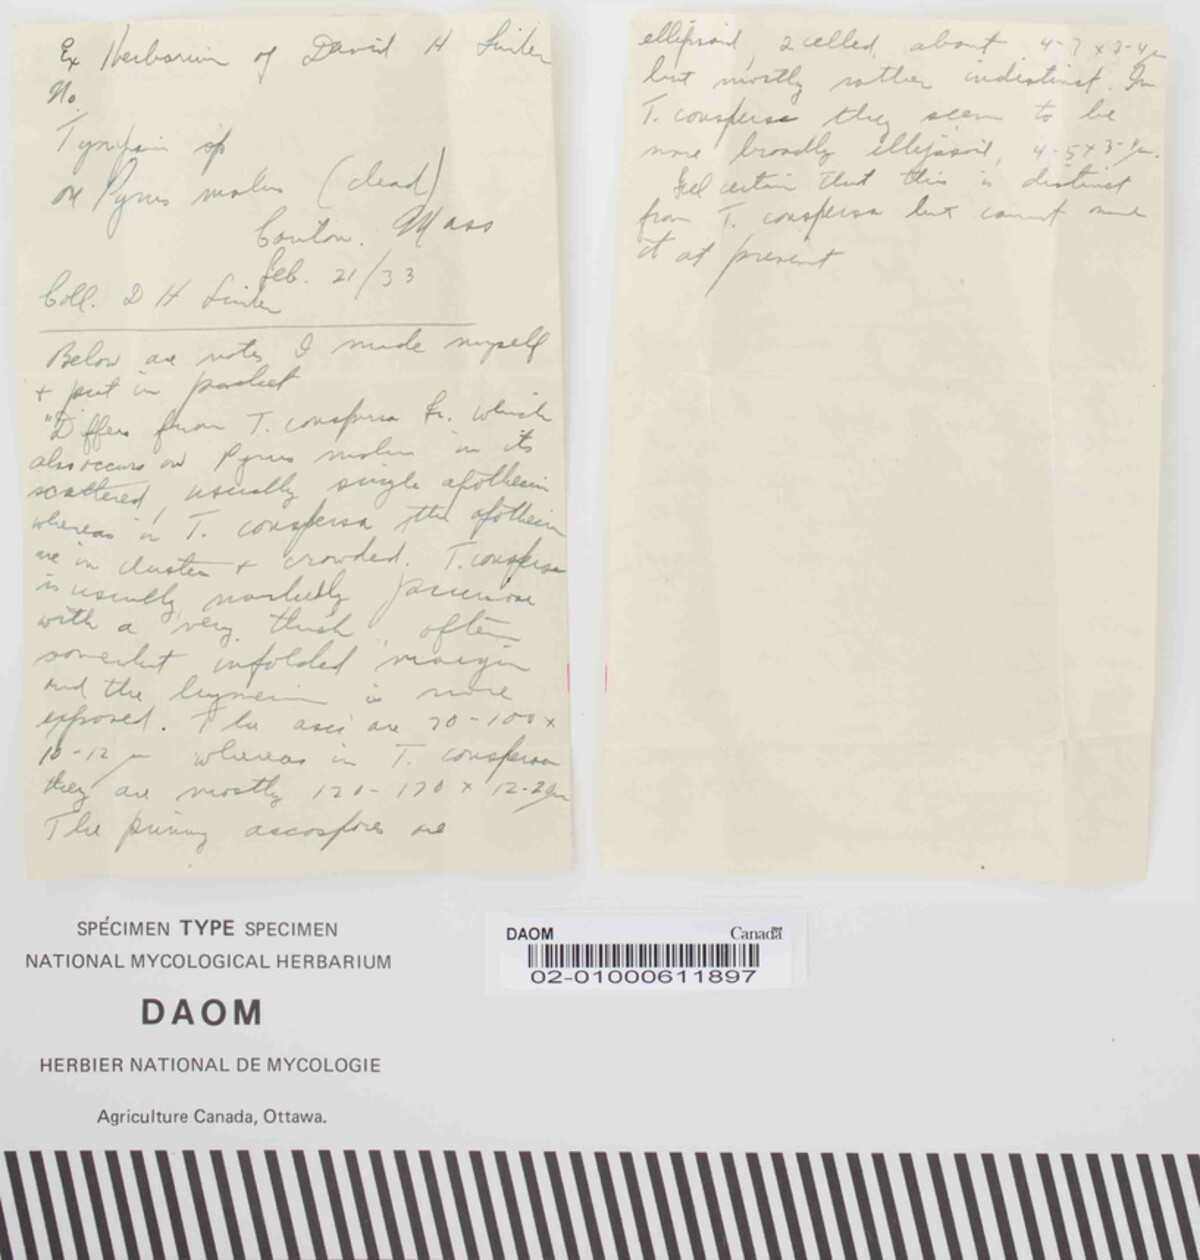 Ex Herbarium of David H Linder
No.
Tympanis sp
on Pyrus malus (dead)
Canton. Mass
Feb. 21/33
Coll. D H Linder
Below are notes I made myself
+ put in packet
"Differs from T. conspersa Fr. which
also occurs on Pyrus malus in its
scattered, usually single apothecia
whereas in T. conspersa the apothecia
are in clusters + crowded. T. conspersa
is usually markedly pruinose
with a very thick, often
somewhat infolded margin
and the hymenium is more
exposed. The asci are 70-100 ×
10-12 µ whereas in T. conspersa
they are mostly 120-170 × 12-20µ
The primary ascospores are
ellipsoid, 2 celled, about 4-7 × 3-4µ
but mostly rather indistinct. In
T. conspersa they seem to be
more broadly ellipsoid, 4-5 × 3-4µ.
Feel certain that this is distinct
from T. conspersa but cannot name
it at present
SPÉCIMEN TYPE SPECIMEN
NATIONAL MYCOLOGICAL HERBARIUM
DAOM
HERBIER NATIONAL DE MYCOLOGIE
Agriculture Canada, Ottawa.
DAOM Canada
02-01000611897